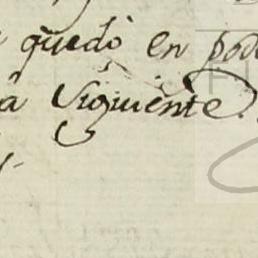 quedò en pod
a Siguiente.